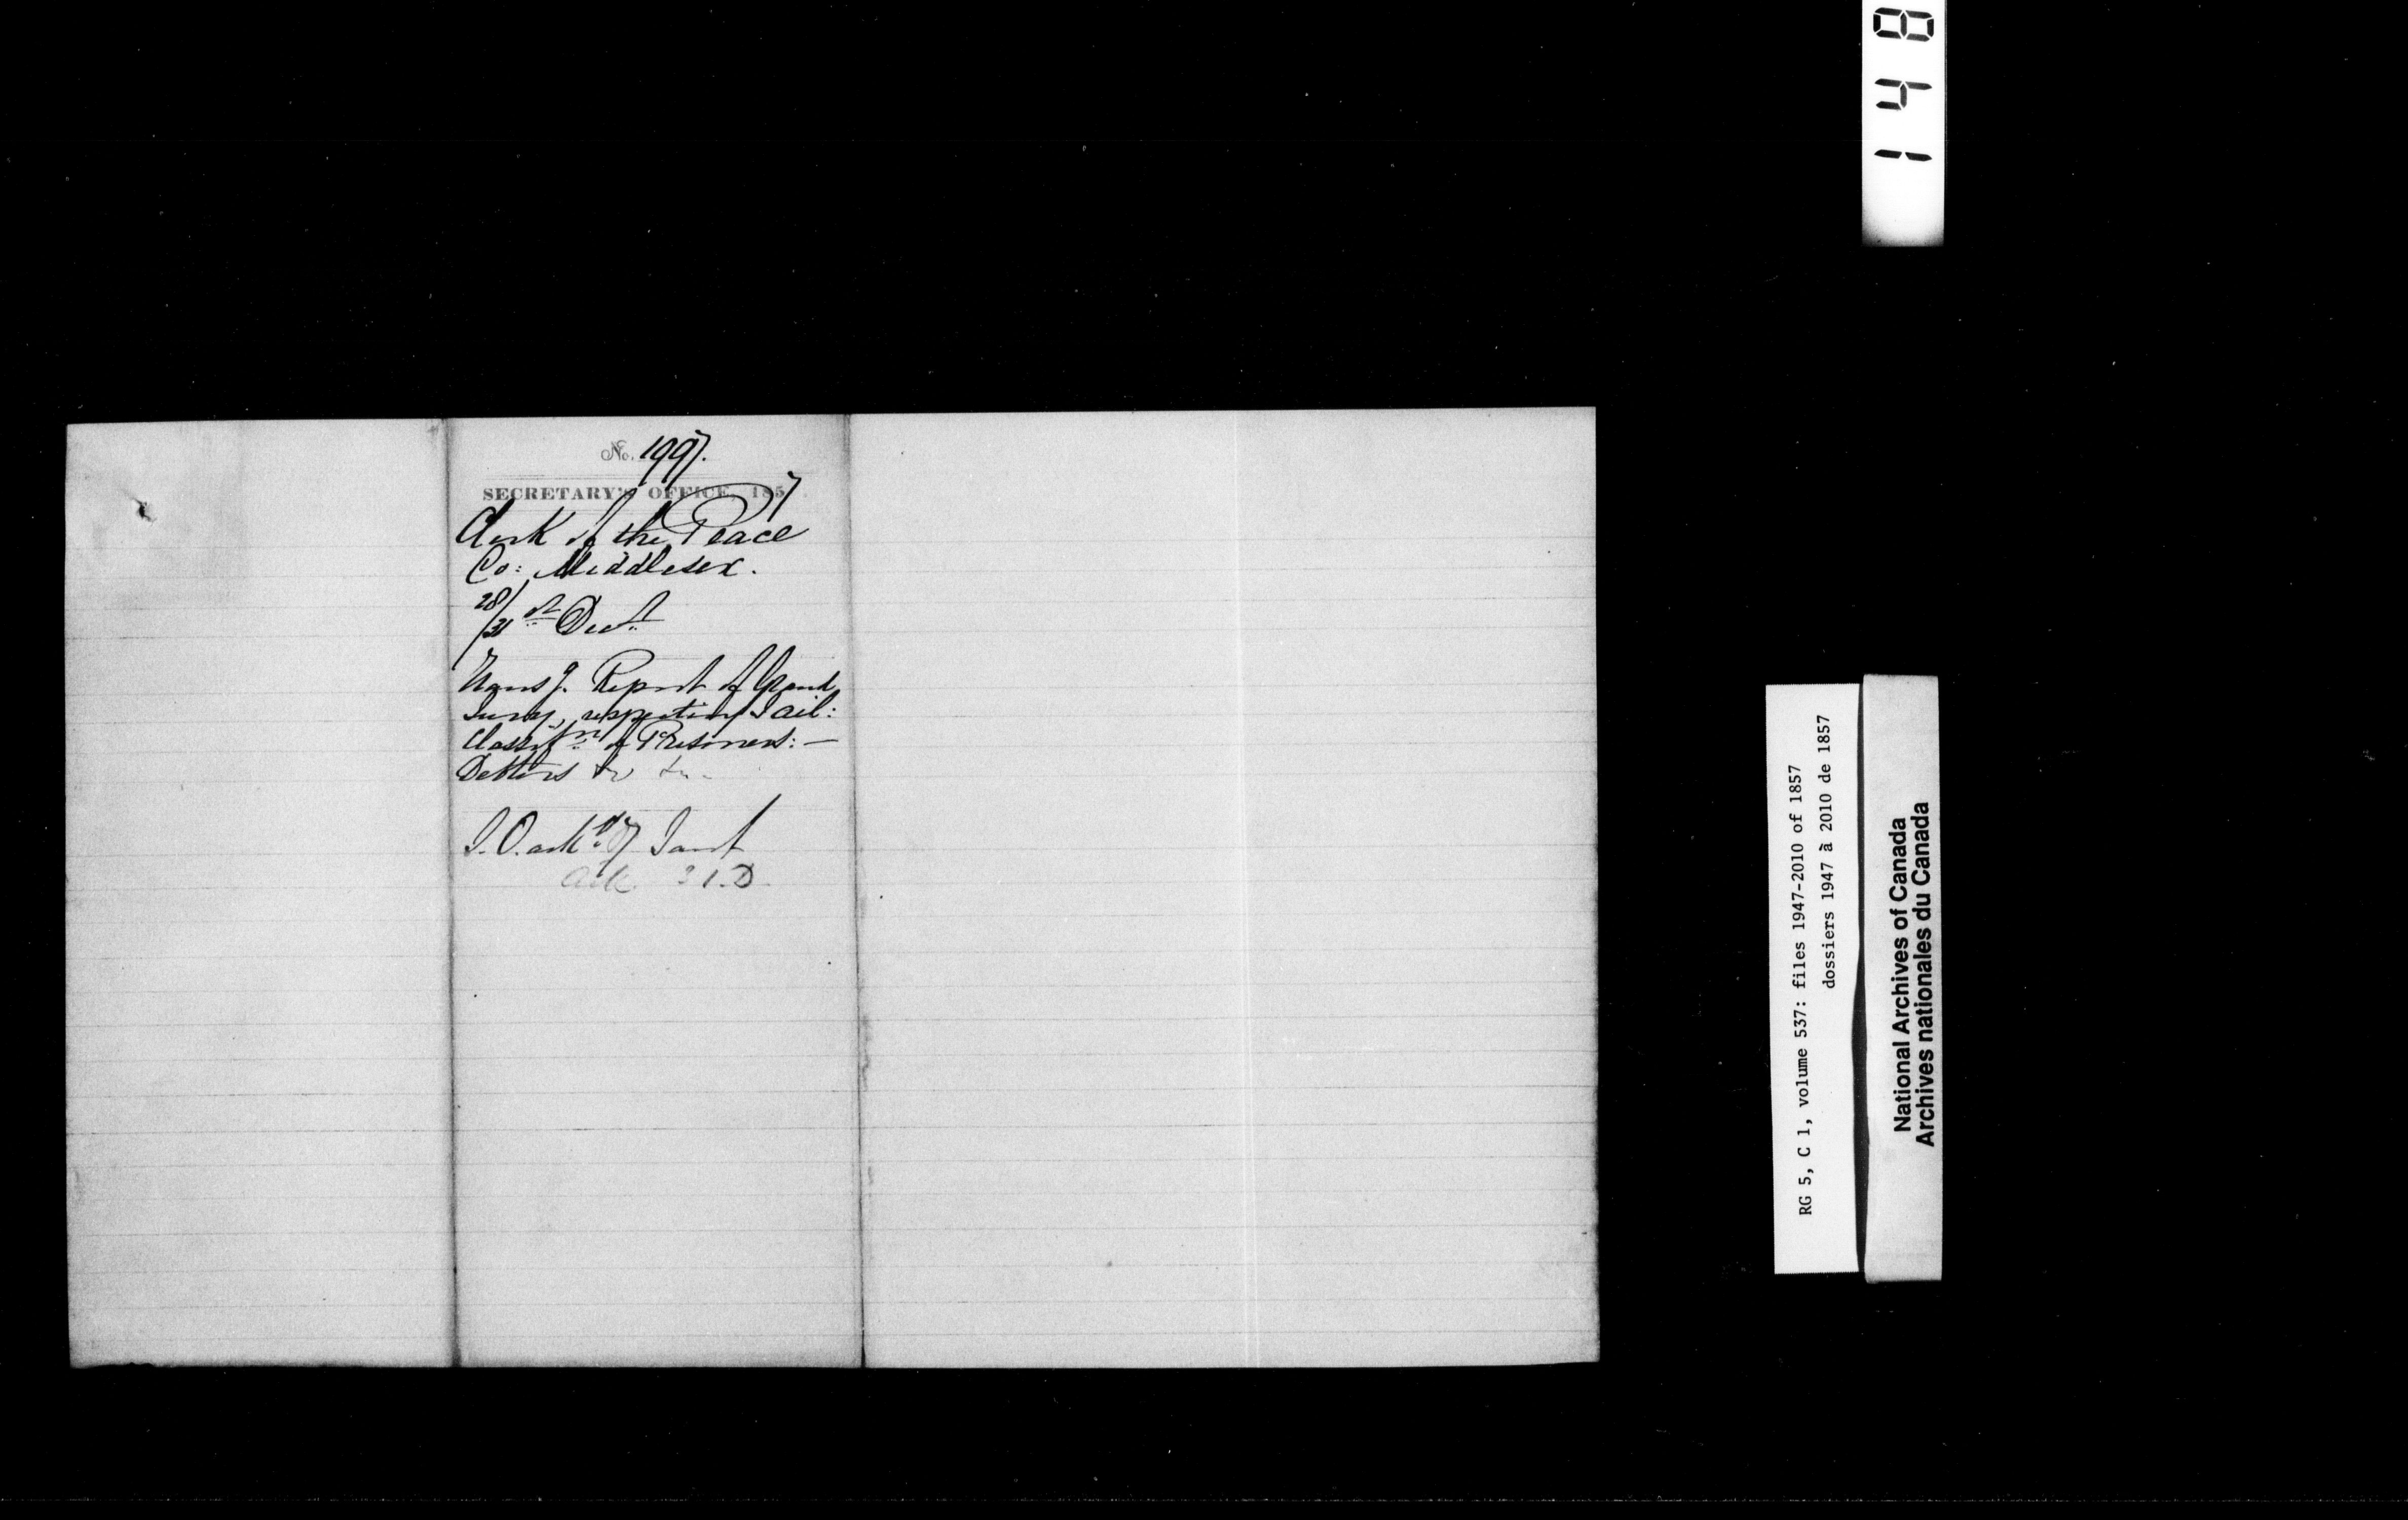 No. 1997.
SECRETARY'S OFFICE, 1857
Clerk of the Peace
Co: Middlesex.
28/31st Decr
Transg. Report of Grand
Jury, respecting Jail:
Classifn of Prisoners: —
Debtors &c &c.
ackd 7 Jant
ack 31.D.
1 4 8
RG 5, C 1, volume 537: files 1947-2010 of 1857
dossiers 1947 à 2010 de 1857
National Archives of Canada
Archives nationales du Canada